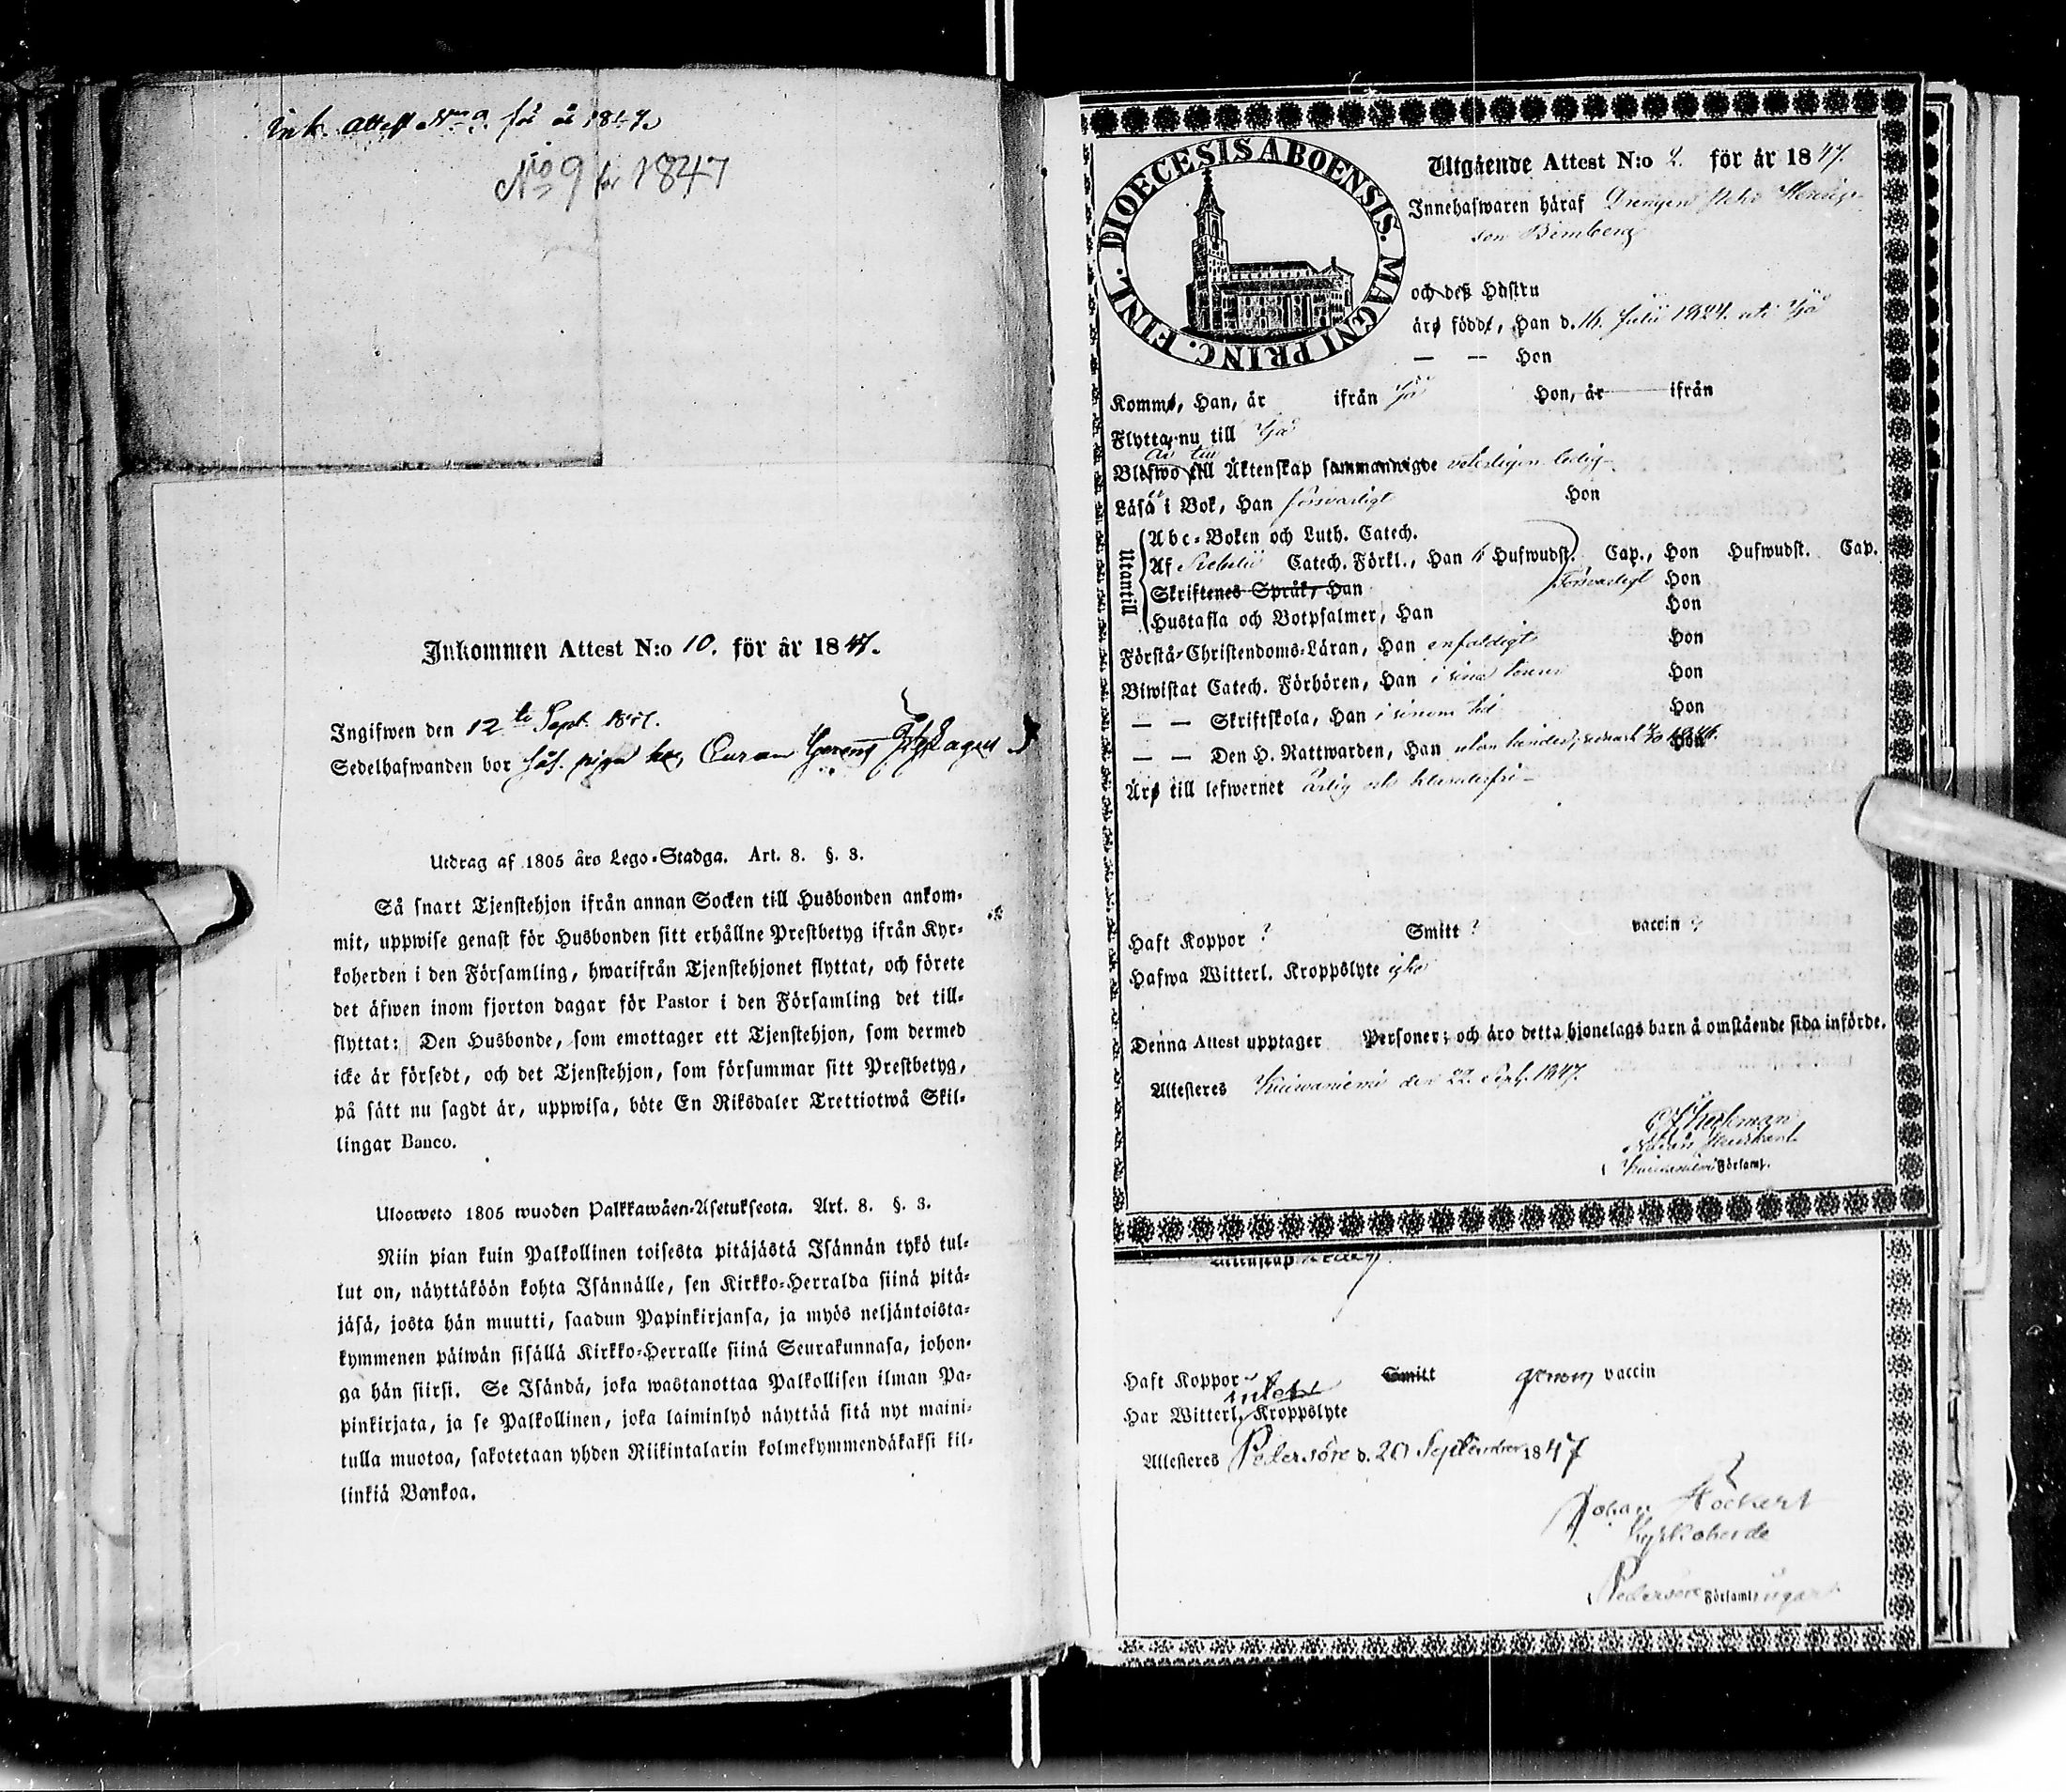 Ink. Attest N:o 9. för år 1847.
No 9 för 1847
Inkommen Attest N:o 10. för år 1847.
Ingifwen den 12te Sept. 1847.
Sedelhafwanden bor såf. piga hos
Utdrag af 1805 åro Lego-Stadga. Art. 8. §. 3.
Så snart Tjenstehjon ifrån annan Socken till Husbonden ankom-
mit, uppwise genast för Husbonden sitt erhållne Prestbetyg ifrån Kyr-
koherden i den Församling, hwarifrån Tjenstehjonet flyttat, och förete
det äfwen inom fjorton dagar för Pastor i den Församling det till-
flyttat: Den Husbonde, som emottager ett Tjenstehjon, som dermed
icke är försedt, och det Tjenstehjon, som försummar sitt Prestbetyg,
på sätt nu sagdt är, uppwisa, böte En Riksdaler Trettiotwå Skil-
lingar Banco.
Ulosweto 1805 wuoden Palkkawäen-Asetuksesta. Art. 8. §. 3.
Niin pian kuin Palkollinen toisesta pitäjästä Isännän tykö tul-
lut on, näyttäköön kohta Isännälle, sen Kirkko-Herralda siinä pitä-
jäsä, josta hän muutti, saadun Papinkirjansa, ja myös neljäntoista-
kymmenen päiwän sisällä Kirkko-Herralle siinä Seurakunnasa, johon-
ga hän siirsi. Se Isändä, joka wastanottaa Palkollisen ilman Pa-
pinkirjata, ja se Palkollinen, joka laiminlyö näyttää sitä nyt maini-
tulla muotoa, sakotetaan yhden Riikintalarin kolmekymmendäkaksi kil-
linkiä Bankoa.
DIOECESIS ABOENSIS. MAGNI PRINC. FINL.
Utgående Attest N:o 2. för år 1847.
Innehafwaren häraf Drengen
son Bimberg
och deß Hustru
äro födde, Han d. 16. Julii 1824. uti Ijo
— — Hon
Komme, Han, år ifrån Ijo Hon, år ifrån
Flytta nu till Ijo
är till
Blefwo till Äktenskap sammanwigde veterligen ledig
Läsa i Bok, Han försvarligt Hon
Utantill
Abc-Boken och Luth. Catech.
Af Catech. Förkl., Han 6 Hufwudst. Cap., Hon Hufwudst. Cap.
Skriftenes Språk, Han försvarligt Hon
Hustafla och Botpsalmer, Han Hon
Förstå Christendoms-Läran, Han enfaldigt Hon
Biwistat Catech. Förhören, Han i sina Hon
— — Skriftskola, Han i sinom tid Hon
— — Den H. Nattwarden, Han utan hinder, Hon
Äro till lefwernet ärlig och
Haft Koppor ? Smitt ? vaccin ?
Hafwa Witterl. Kroppslyte icke
Denna Attest upptager Personer; och äro detta hjonelags barn å omstående sida införde.
Attesteres Kuiwaniemi den 22. Sept. 1847.
Kuiwaniemi Församl.
Äktenskap ledig.
Haft Koppor Smitt genom vaccin
intet
Har Witterl. Kroppslyte
Attesteres Pedersöre d. 20 September 1847
Johan Höckert
Kyrkoherde
Pedersöre Församlingar